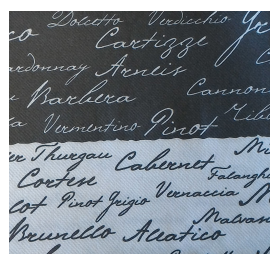 Dolcetto Verdicchio
co Cartizze Gr
ardonnay Arneis
Barbera Cannon
a Vermentino Pinot
er Thurgau Cabernet Mü
Cortese Falangh
lot Pinot Grigio Vernaccia
Malvas
Brunello Aleatico